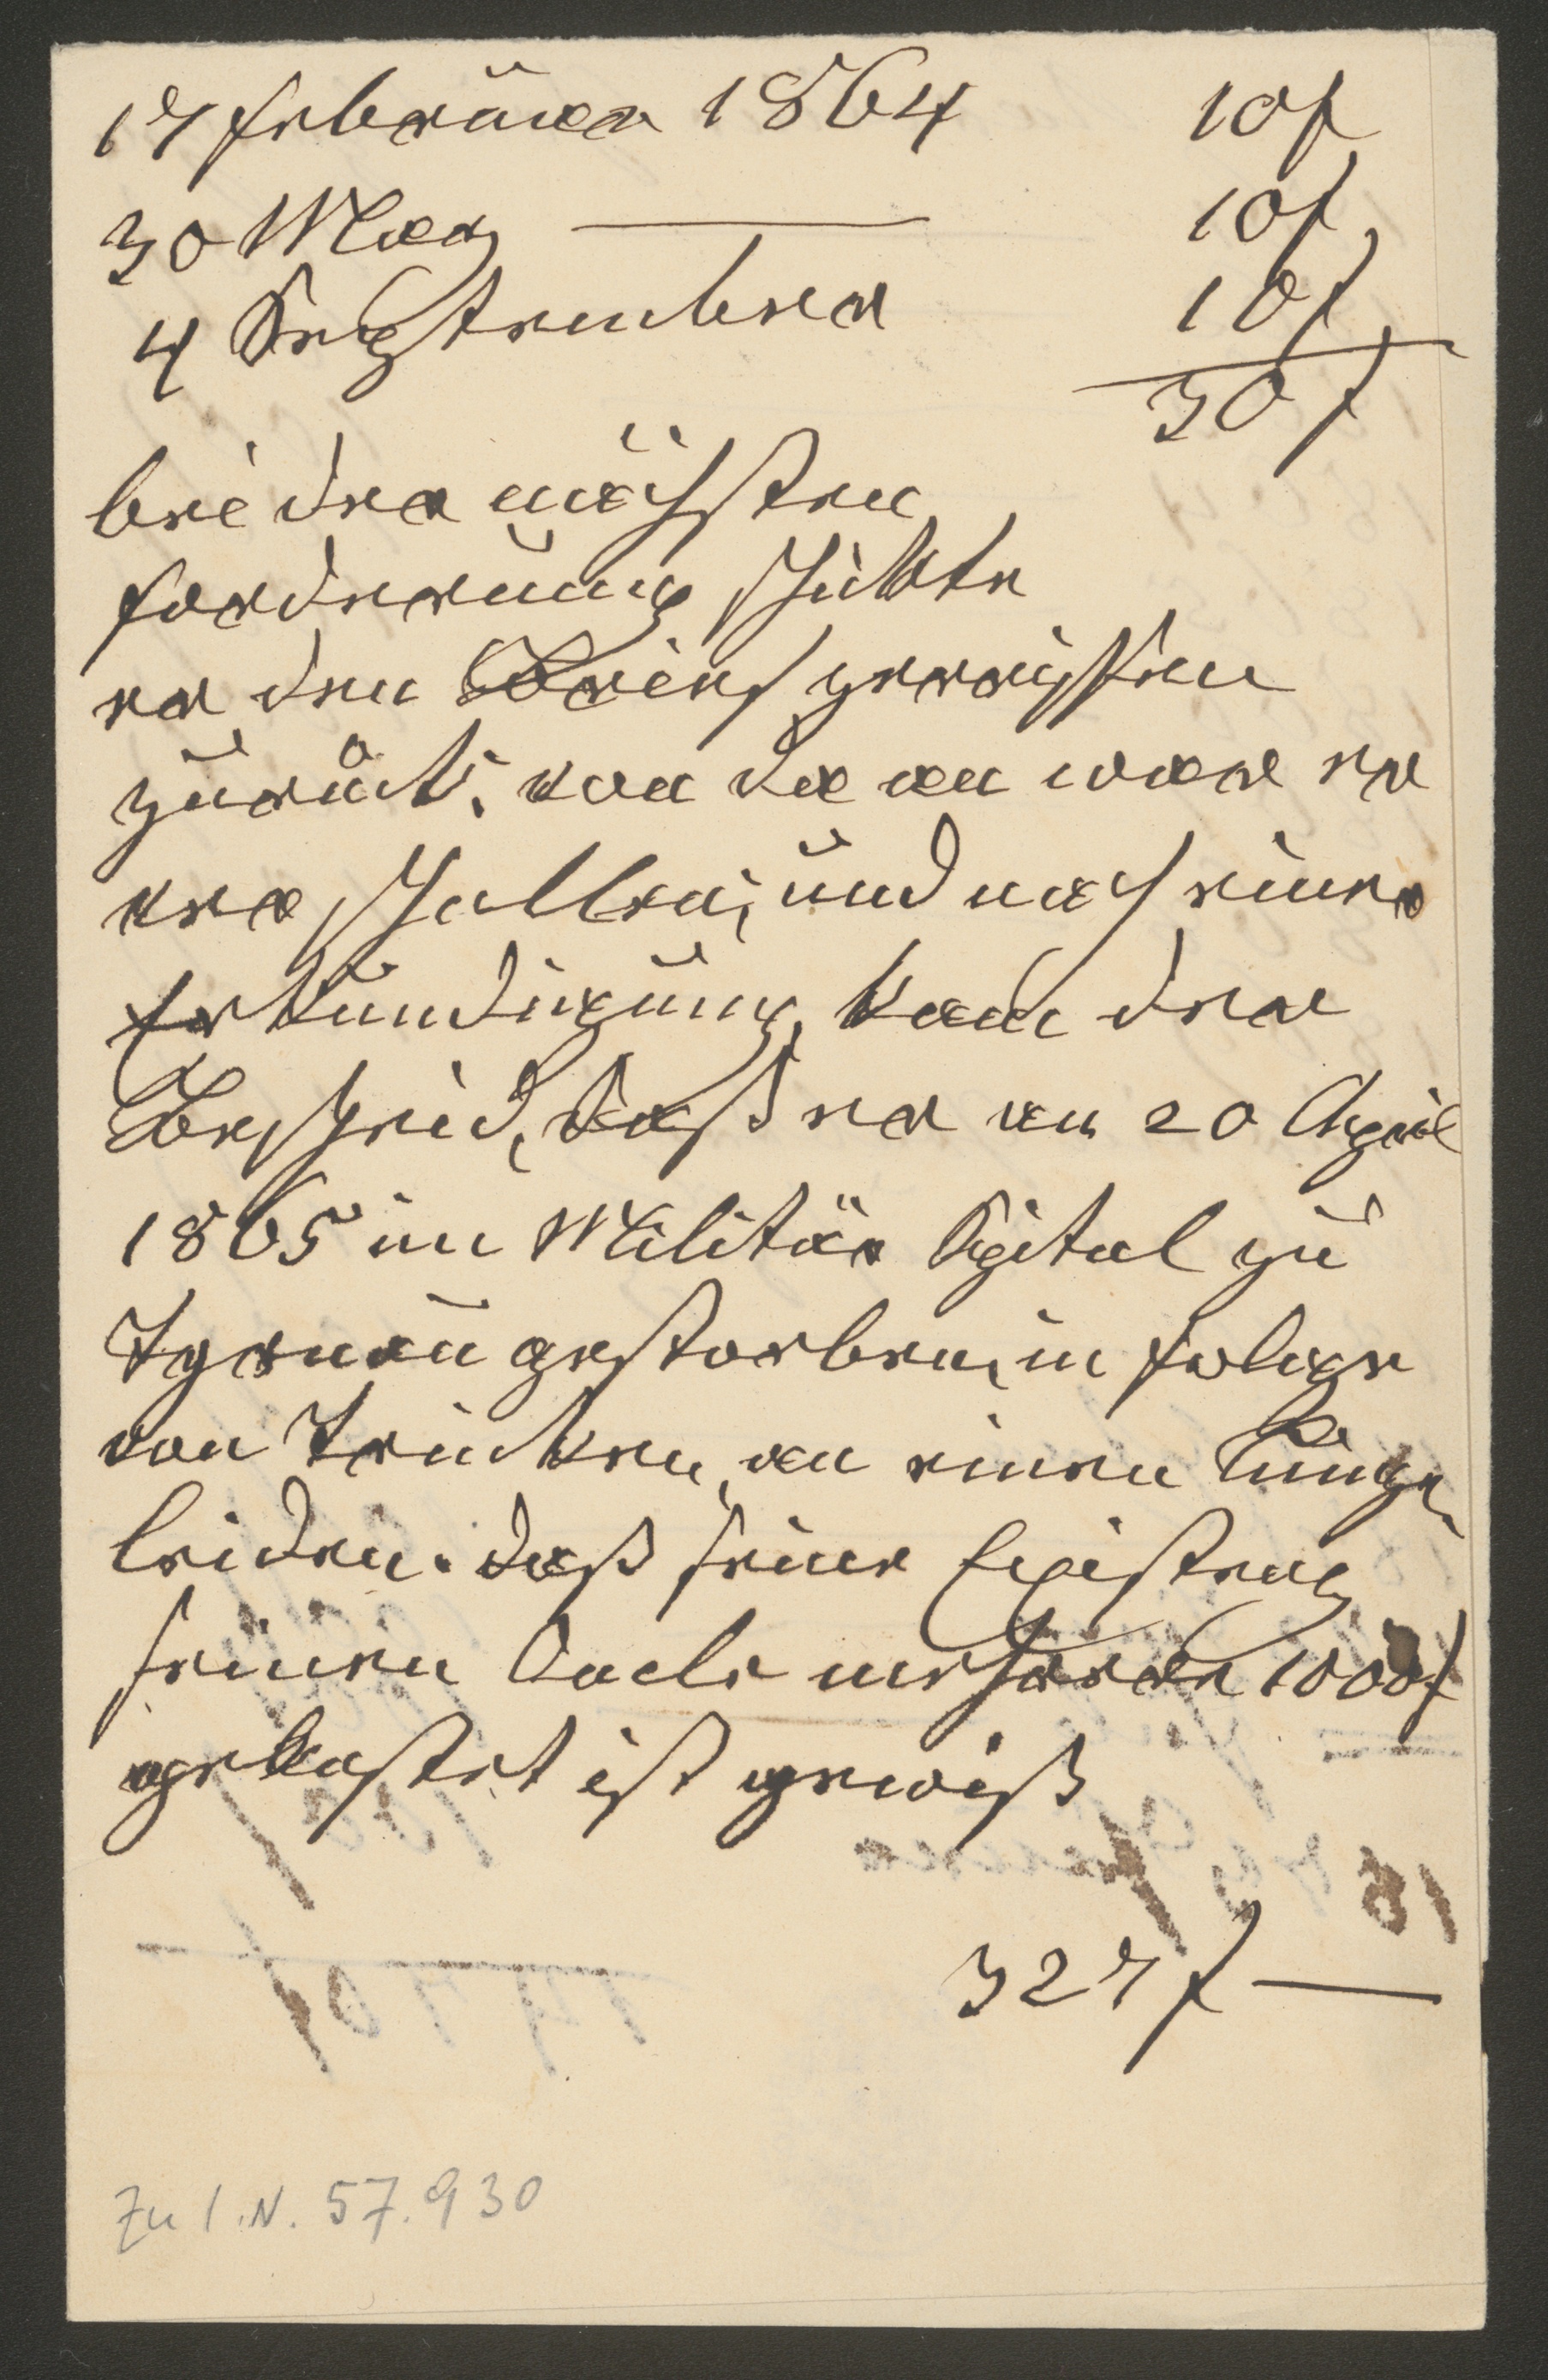 17 februar 1864 10f
30 März — 10f
4 September 10f
30f
bei der nächsten
forderung schickte
er den Brief zerrissen
zurück; von da an war er
verschollen; und nach einer
Erkundigung kam der
Bescheid, daß er am 20 April
1865 im Militär Spital zu
Tyrnau gestorben, in folge
von Trinken, an einem Lungen
leiden. daß seine Existenz
seinen Onkel mehrere 1000f
gekostet ist gewiß
327f —
Zu I.N. 57.930